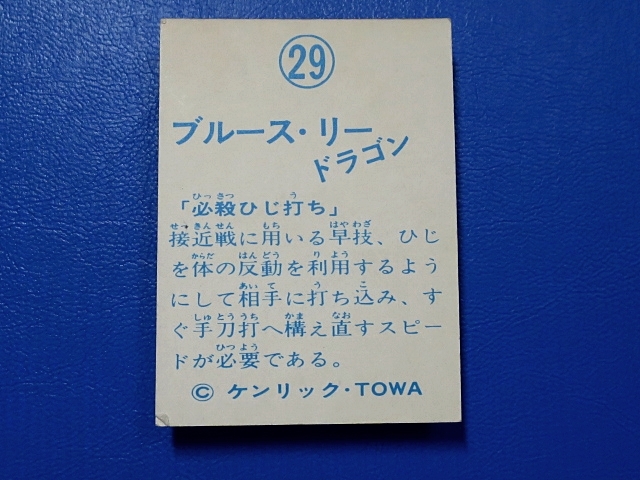 29
ブルース・リー
ドラゴン
「必殺ひじ打ち」
接近戦に用いる早技、ひじ
を体の反動を利用するよう
にして相手に打ち込み、す
ぐ手刀打へ構え直すスピー
ドが必要である。
© ケンリック・TOWA